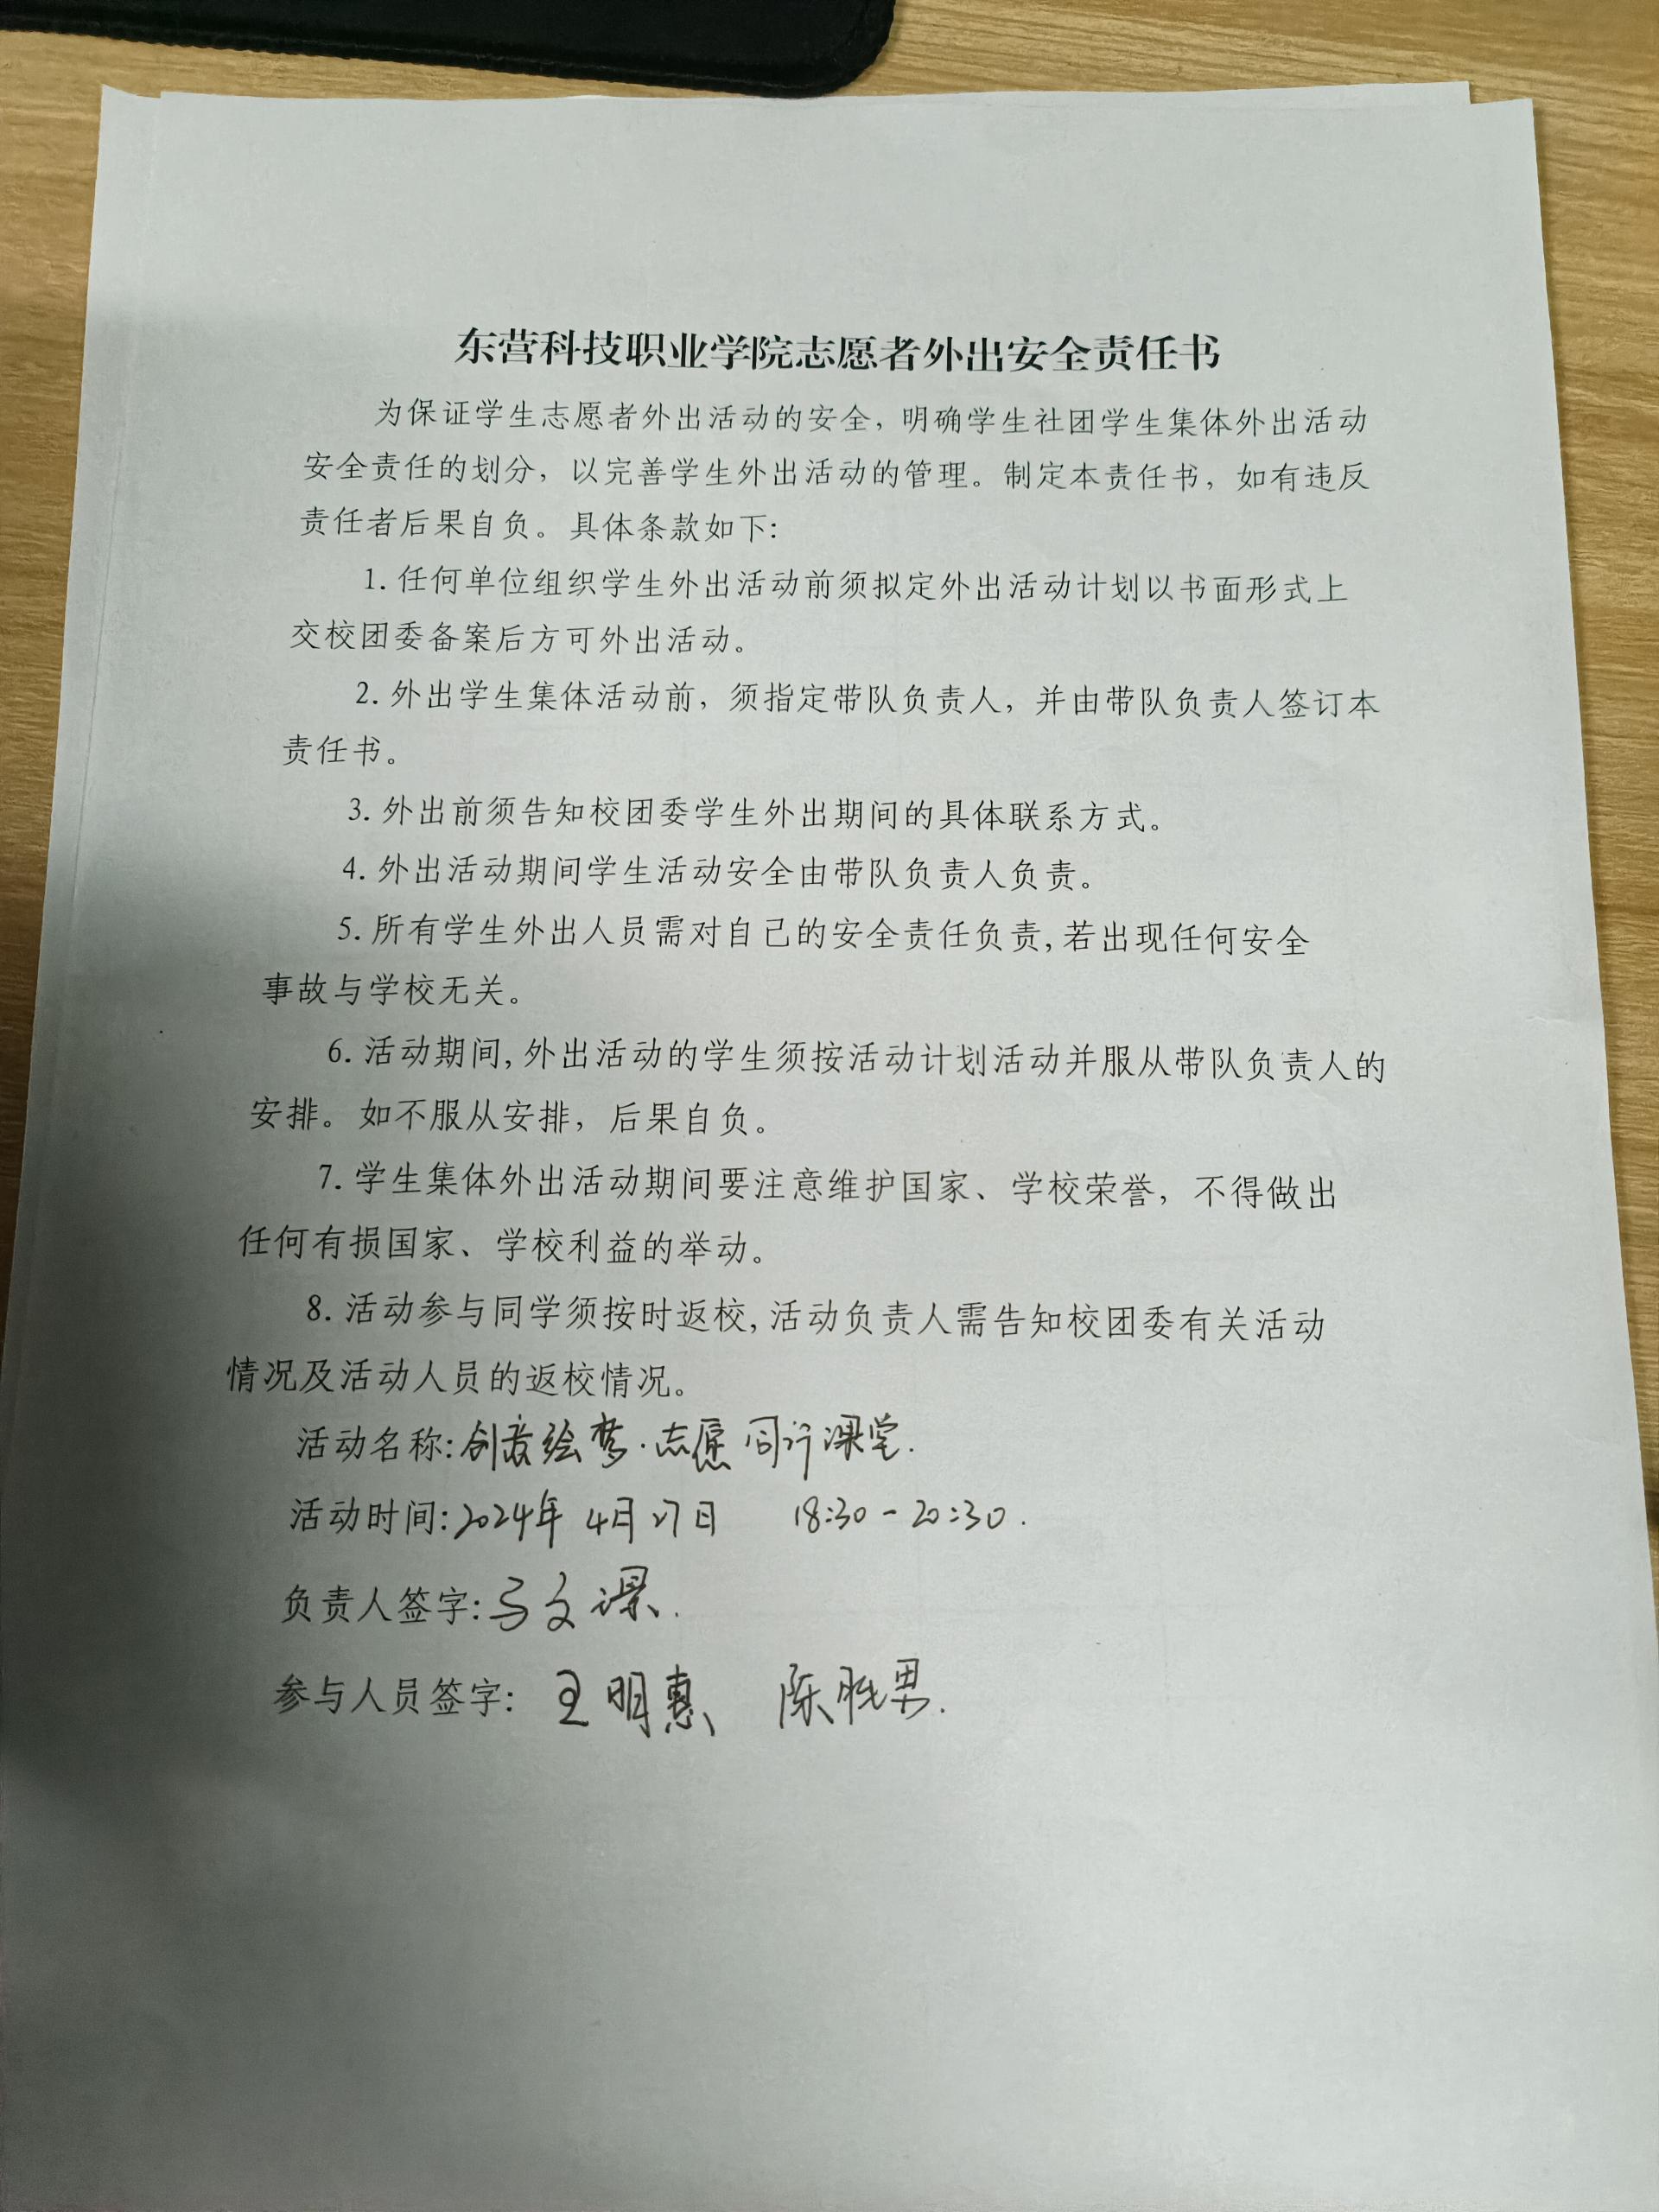 东营科技职业学院志愿者外出安全责任书
为保证学生志愿者外出活动的安全，明确学生社团学生集体外出活动
安全责任的划分，以完善学生外出活动的管理。制定本责任书，如有违反
责任者后果自负。具体条款如下：
1. 任何单位组织学生外出活动前须拟定外出活动计划以书面形式上
交校团委备案后方可外出活动。
2. 外出学生集体活动前，须指定带队负责人，并由带队负责人签订本
责任书。
3. 外出前须告知校团委学生外出期间的具体联系方式。
4. 外出活动期间学生活动安全由带队负责人负责。
5. 所有学生外出人员需对自己的安全责任负责，若出现任何安全
事故与学校无关。
6. 活动期间，外出活动的学生须按活动计划活动并服从带队负责人的
安排。如不服从安排，后果自负。
7. 学生集体外出活动期间要注意维护国家、学校荣誉，不得做出
任何有损国家、学校利益的举动。
8. 活动参与同学须按时返校，活动负责人需告知校团委有关活动
情况及活动人员的返校情况。
活动名称：创意绘梦·志愿同行课堂.
活动时间：2024年 4月27日 18:30-20:30.
负责人签字：马文
参与人员签字： 王明惠 陈胜男.